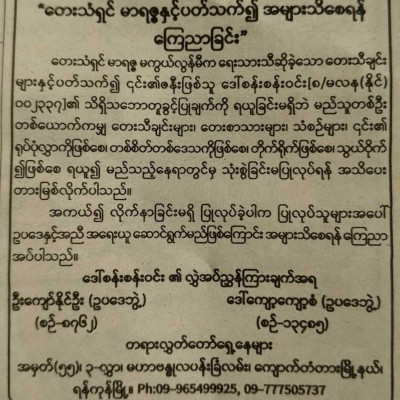 “တေးသံရှင် မာရဇ္ဇနှင့်ပတ်သက်၍ အများသိစေရန်
ကြေညာခြင်း”
တေးသံရှင် မာရဇ္ဇ မကွယ်လွန်မီက ရေးသားသီဆိုခဲ့သော တေးသီချင်း
များနှင့်ပတ်သက်၍ ၎င်း၏ဇနီးဖြစ်သူ ဒေါ်စန်းစန်းဝင်း[၈/မလန(နိုင်)
၀၀၂၃၃၇]၏ သိရှိသဘောတူခွင့်ပြုချက်ကို ရယူခြင်းမရှိဘဲ မည်သူတစ်ဦး
တစ်ယောက်ကမျှ တေးသီချင်းများ၊ တေးစာသားများ၊ သံစဉ်များ၊ ၎င်း၏
ရုပ်ပုံလွှာကိုဖြစ်စေ၊ တစ်စိတ်တစ်ဒေသကိုဖြစ်စေ၊ တိုက်ရိုက်ဖြစ်စေ၊ သွယ်ဝိုက်
၍ဖြစ်စေ ရယူ၍ မည်သည့်နေရာတွင်မှ သုံးစွဲခြင်းမပြုလုပ်ရန် အသိပေး
တားမြစ်လိုက်ပါသည်။
အကယ်၍ လိုက်နာခြင်းမရှိ ပြုလုပ်ခဲ့ပါက ပြုလုပ်သူများအပေါ်
ဥပဒေနှင့်အညီ အရေးယူ ဆောင်ရွက်မည်ဖြစ်ကြောင်း အများသိစေရန် ကြေညာ
အပ်ပါသည်။
ဒေါ်စန်းစန်းဝင်း ၏ လွှဲအပ်ညွှန်ကြားချက်အရ
ဦးကျော်နိုင်ဦး (ဥပဒေဘွဲ့) ဒေါ်ကျော့ကျော့စံ (ဥပဒေဘွဲ့)
(စဉ်-၈၇၆၂) (စဉ်-၁၃၄၈၅)
တရားလွှတ်တော်ရှေ့နေများ
အမှတ်(၅၅)၊ ၃-လွှာ၊ မဟာဗန္ဓုလပန်းခြံလမ်း၊ ကျောက်တံတားမြို့နယ်၊
ရန်ကုန်မြို့။ Ph:09-965499925, 09-777505737